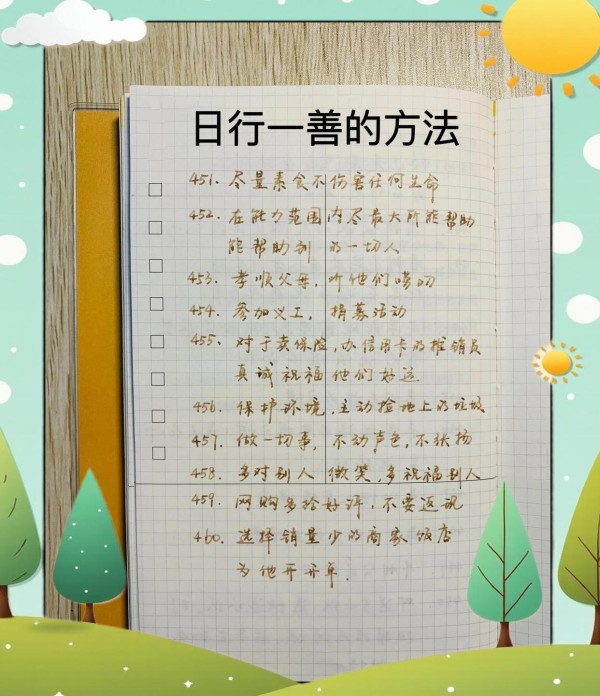 日行一善的方法
451. 尽量素食不伤害任何生命
452. 在能力范围内尽最大所能帮助
能帮助别的一切人
453. 孝顺父母,听他们唠叨
454. 参加义工,捐募活动
455. 对于卖保险,办信用卡的推销员
真诚祝福他们好运
456. 保护环境,主动捡地上的垃圾
457. 做一切事,不动声色,不张扬
458. 多对别人微笑,多祝福别人
459. 网购多给好评,不要返现
460. 选择销量少的商家饭店
为他开开单.